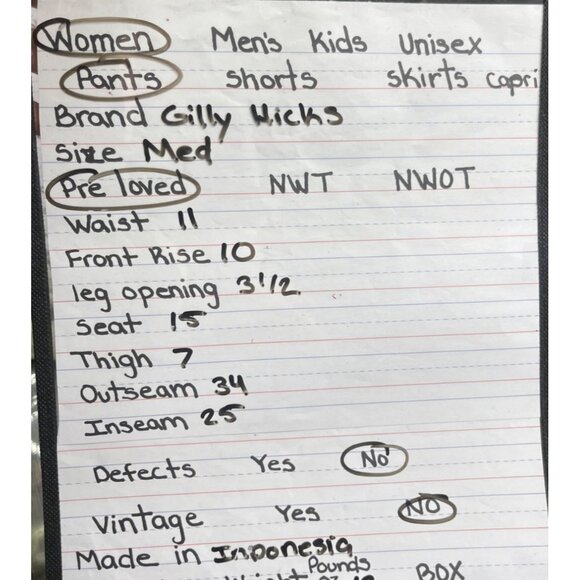 Women Men's Kids Unisex
Pants shorts skirts capri
Brand Gilly Hicks
Size Med
Pre loved NWT NWOT
Waist 11
Front Rise 10
leg opening 3 1/2
Seat 15
Thigh 7
Outseam 34
Inseam 25
Defects Yes No
Vintage Yes NO
Made in Indonesia
Pounds BOX